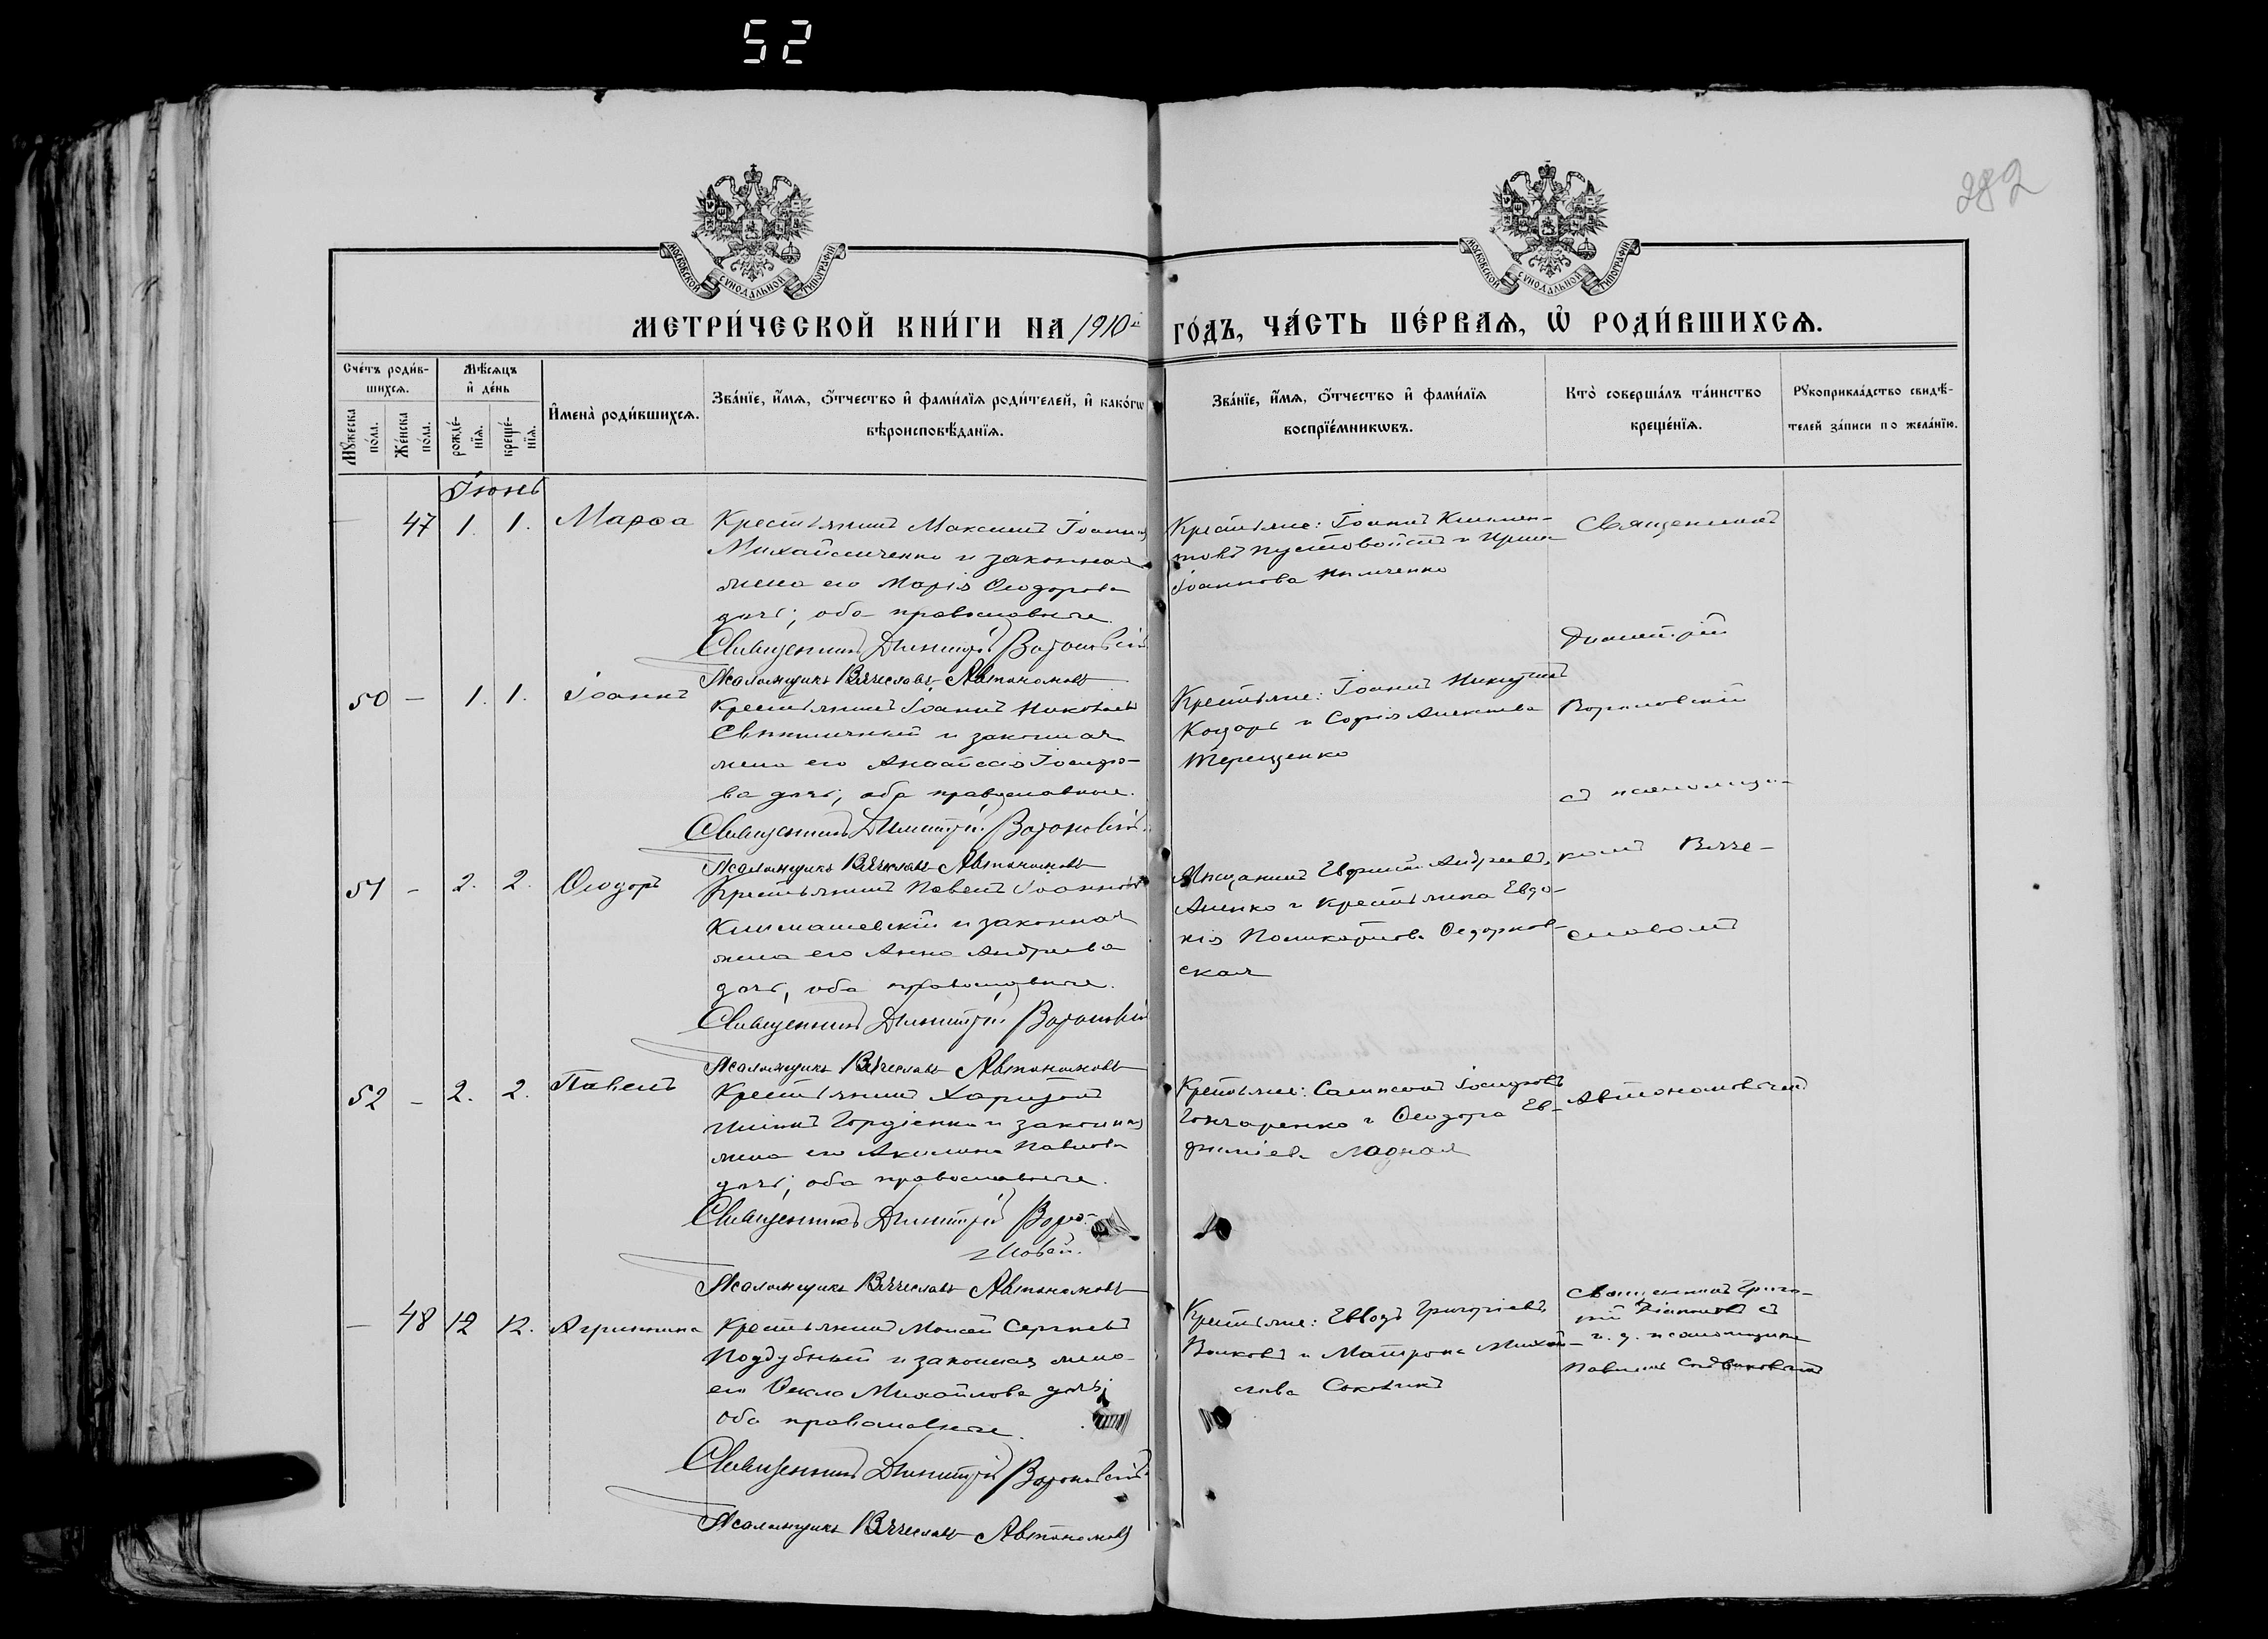 52
282
МОСКОВСКОЙ СѴНОДАЛЬНОЙ ТИПОГРАФІИ
МОСКОВСКОЙ СѴНОДАЛЬНОЙ ТИПОГРАФІИ
МЕТРИ́ЧЕСКОЙ КНИ́ГИ НА 1910й ГО́ДЪ, ЧА́СТЬ ПЕ́РВАѦ, Ѡ҆ РОДИ́ВШИХСѦ.
Сче́тъ роди́в-
шихсѧ.
Мѣ́сѧцъ
и҆ де́нь
Мꙋ́жеска
по́ла.
Же́нска
по́ла.
рожде́-
нїѧ.
креще́-
нїѧ.
И҆мена̀ роди́вшихсѧ.
Зва́нїе, и҆́мѧ, ѻ҆́тчество и҆ фами́лїѧ роди́телей, и҆ како́гѡ
вѣроисповѣ́данїѧ.
Зва́нїе, и҆́мѧ, ѻ҆́тчество и҆ фами́лїѧ
воспрїе́мникѡвъ.
Кто̀ соверша́лъ та́инство
креще́нїѧ.
Рꙋкоприкла́дство свидѣ́-
телей за́писи по жела́нїю.
Іюнь
— 47 1. 1. Марѳа
Крестьянинъ Максимъ Іоанновъ
Михайличенко и законная
жена его Марія Ѳеодорова
дочь; оба православные.
Священникъ Димитрій Вороновскій
Псаломщикъ Вячеславъ Автономовъ
Крестьяне: Іоаннъ Климен-
товъ Пустовойтъ и Ирина
Іоаннова
Священникъ
Димитрій
50 — 1. 1. Іоаннъ
Крестьянинъ Іоаннъ Николаевъ
и законная
жена его Анастасія Іосифо-
ва дочь, оба православные.
Священникъ Димитрій Вороновскій.
Псаломщикъ Вячеславъ Автономовъ
Крестьяне: Іоаннъ Никитинъ
и Софія Алексѣева
Терещенко
Вороновскій
съ псаломщи-
51 — 2. 2. Ѳеодоръ
Крестьянинъ Павелъ Іоанновъ
Климашевскій и законная
жена его Анна Андреева
дочь, оба православные.
Священникъ Димитрій Вороновскій
Псаломщикъ Вячеславъ Автономовъ
Мѣщанинъ Евфимій Андреевъ
и крестьянка Евдо-
кія Поликарпова
ская
комъ Вяче-
славомъ
52 — 2. 2. Павелъ
Крестьянинъ Харитонъ
Гордіенко и законная
жена его Акилина Павлова
дочь, оба православные.
Священникъ Димитрій Воро-
новскій.
Псаломщикъ Вячеславъ Автономовъ
Крестьяне: Самсонъ Іосифовъ
Гончаренко и Ѳеодора Ев-
фиміева Ладная
Автономовымъ
— 48 12 12. Агриппина
Крестьянинъ Моисей Сергіевъ
Поддубный и законная жена
его Ѳекла Михайлова дочь,
оба православные.
Священникъ Димитрій Вороновскій
Псаломщикъ Вячеславъ Автономовъ
Крестьяне: Григоріевъ
Волковъ и Матрона Михай-
лова
Священникъ Григо-
рій съ
и. д. псаломщика
Павломъ